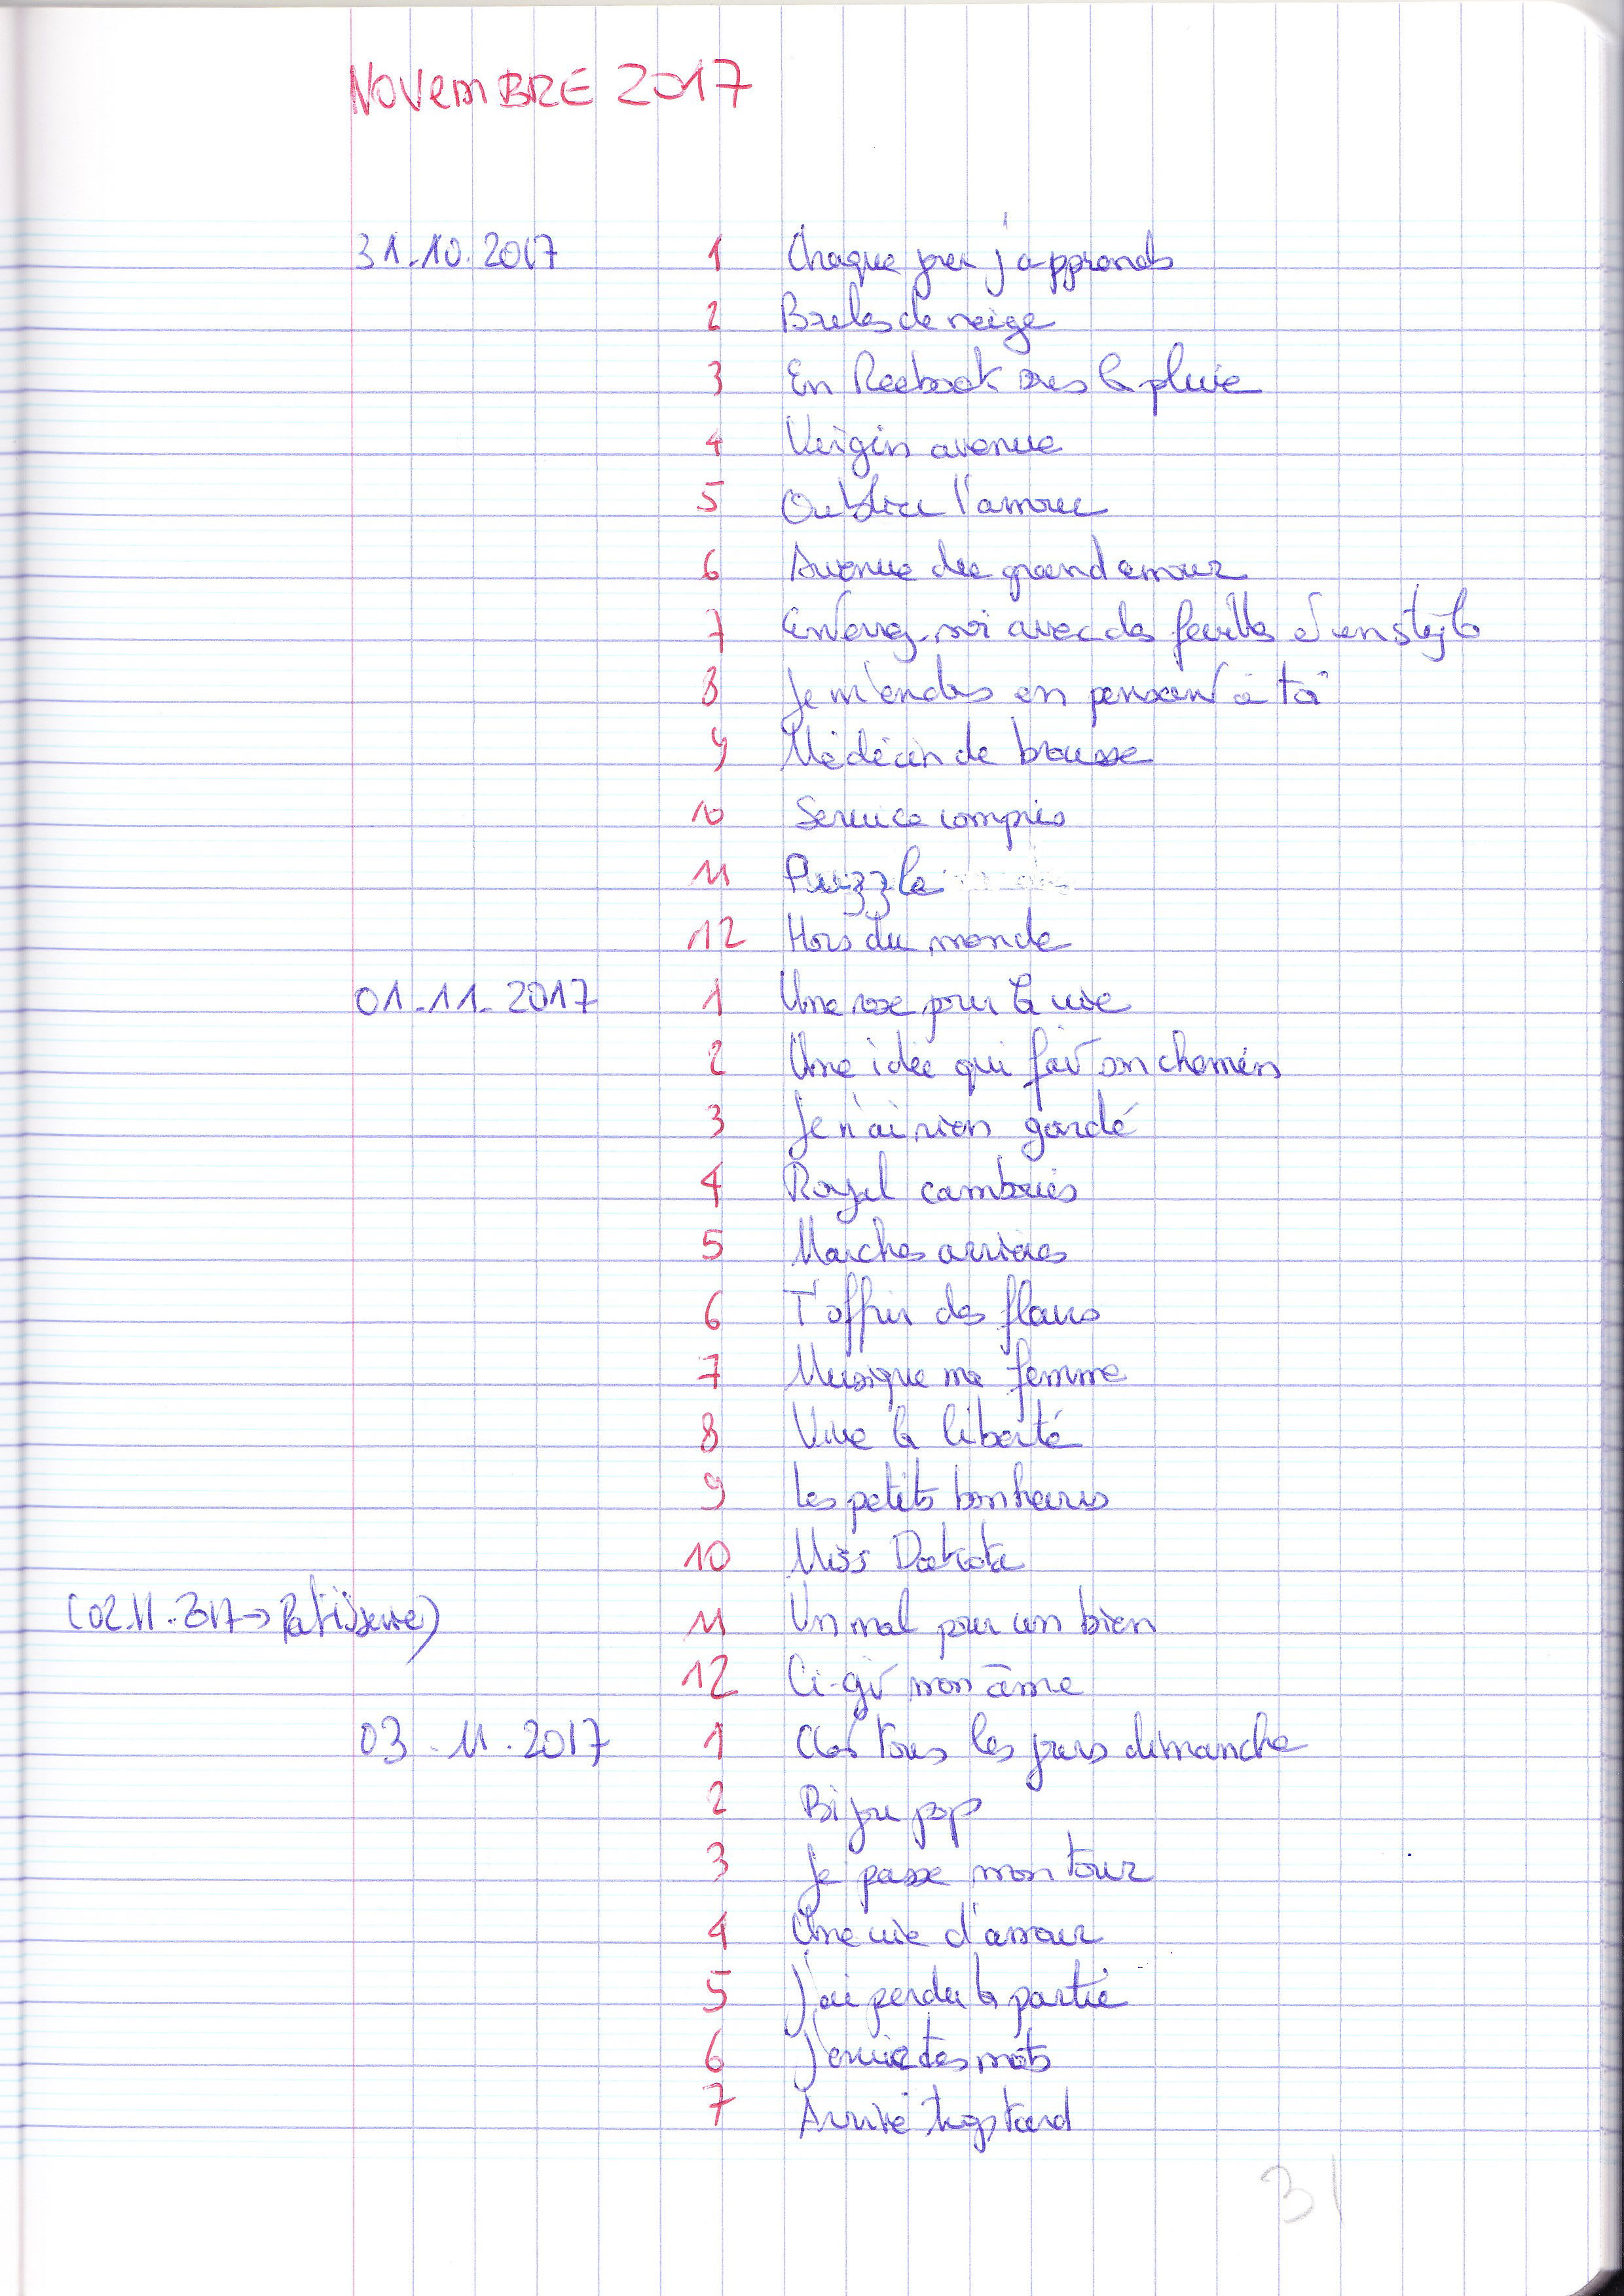 NOVEMBRE 2017
31.10.2017 1 Chaque jour j'apprends
2 Boules de neige
3 En Reebook sous la pluie
4 Virgin avenue
5 Oublier l'amour
6 Avenue du grand amour
7 Enterrez-moi avec des feuilles et un stylo
8 Je m'endors en pensant à toi
9 Médécin de brousse
10 Service compris
11 Puzzle
12 Hors du monde
01.11.2017 1 Une rose pour la vie
2 Une idée qui fait son chemin
3 Je n'ai rien gardé
4 Royal cambouis
5 Marches arrières
6 T'offrir des fleurs
7 Musique ma femme
8 Vive la liberté
9 Les petits bonheurs
10 Miss Dakota
(02.11.2017 → Patisserie) 11 Un mal pour un bien
12 Ci-git mon âme
03.11.2017 1 C'est tous les jours dimanche
2 Bijou pop
3 Je passe mon tour
4 Une vie d'amour
5 J'ai perdu la partie
6 J'envie tes mots
7 Arrivé trop tard
31